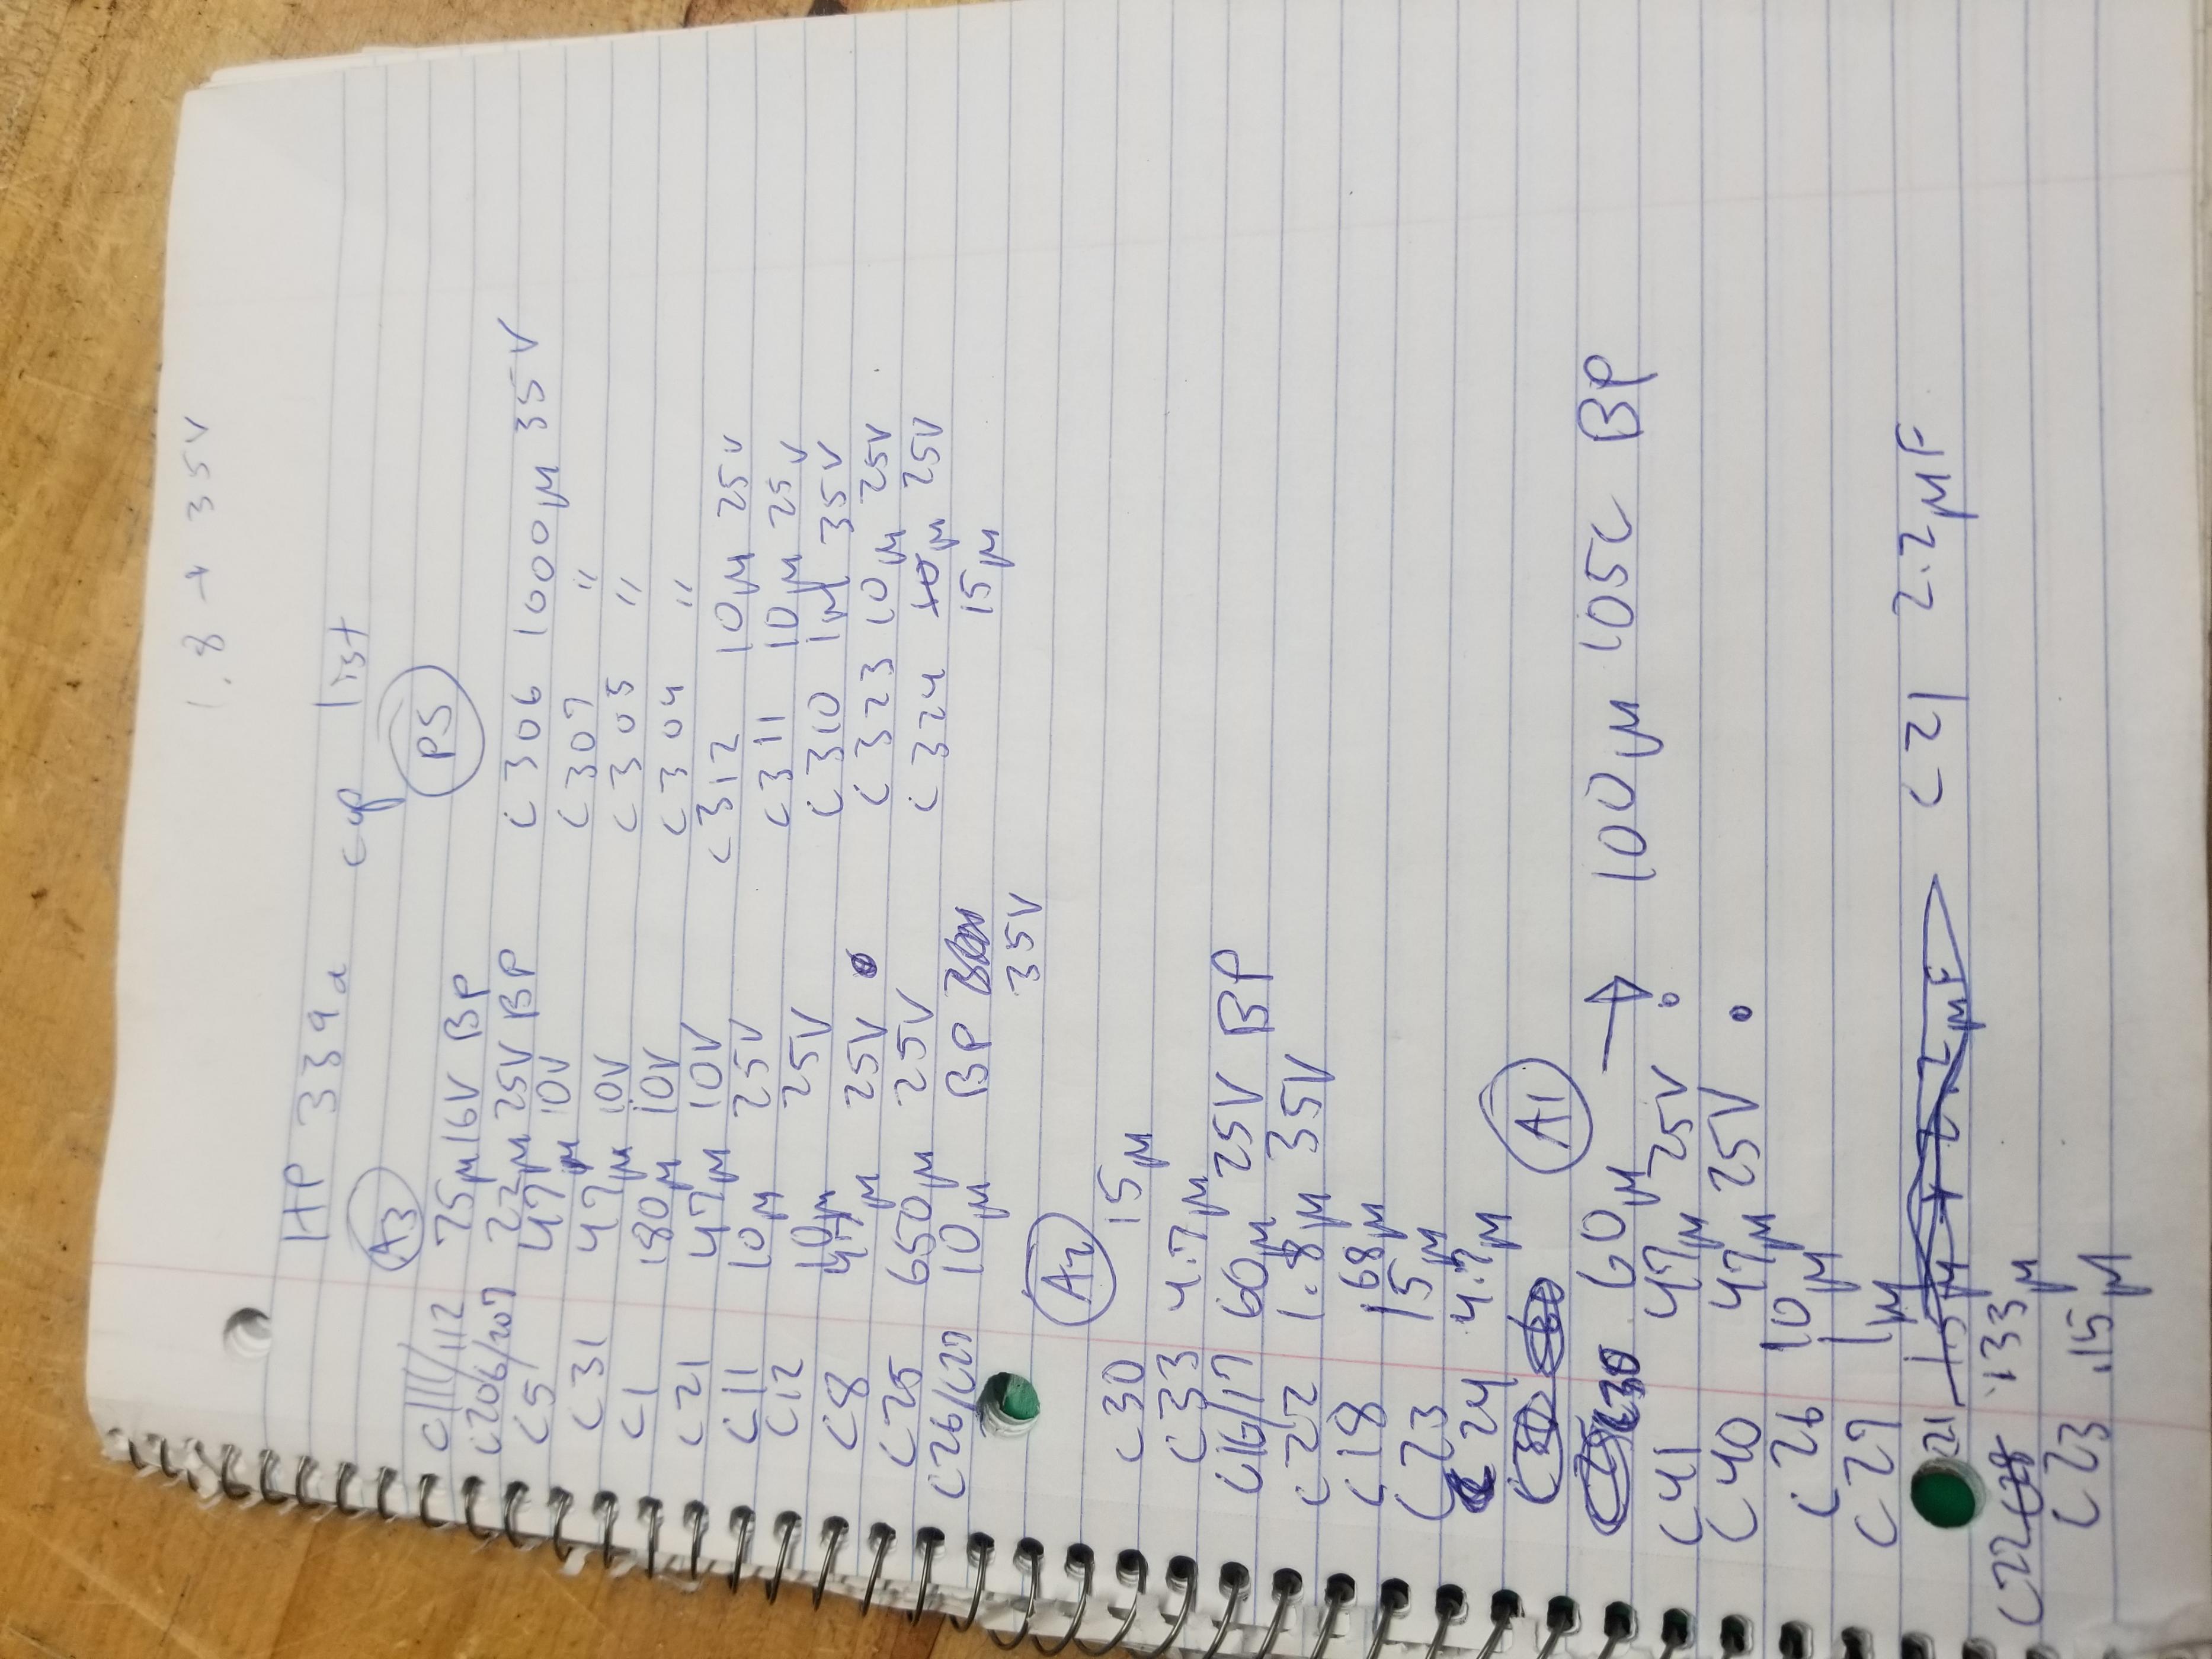 1.8 + 35V
HP 339a cap list
A3
C111/112 75µ 16V BP
C206/207 22µ 25V BP
C5 47µ 10V
C31 47µ 10V
C1 180µ 10V
C21 47µ 10V
C11 10µ 25V
C12 10µ 25V
C8 47µ 25V
C25 650µ 25V
C26/C27 10µ BP
35V
PS
C306 1000µ 35V
C307 "
C305 "
C304 "
C312 10µ 25V
C311 10µ 25V
C310 1µ 35V
C323 10µ 25V
C324 10µ 25V
15µ
A2
C30 15µ
C33 4.7µ
C16/17 60µ 25V BP
C22 1.8µ 35V
C18 68µ
C23 15µ
C24 4.7µ
A1
C30 60µ → 100µ 105C BP
C41 47µ 25V
C40 47µ 25V
C26 10µ
C29 1µ
C21 2.2µF
C22 .33µ
C23 .15µ